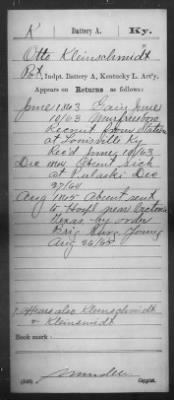 K | Battery A. | Ky.
Otto Kleinschmidt
Pvt., Indpt. Battery A, Kentucky L. Art'y.
Appears on Returns as follows:
June 1863 Gain June
10/63 Murfreesboro
Recruit from Station
at Louisville Ky
Rec'd June 10/63
Dec 1864 Absent sick
at Pulaski Dec
27/64
Aug 1865 Absent sent
to Hosp'l near Victoria
Texas by order
Brig Surg. Young
Aug 26/65
Appears also Kleinschmidt
& Kleinsmidt
Book mark:
(546) Copyist.